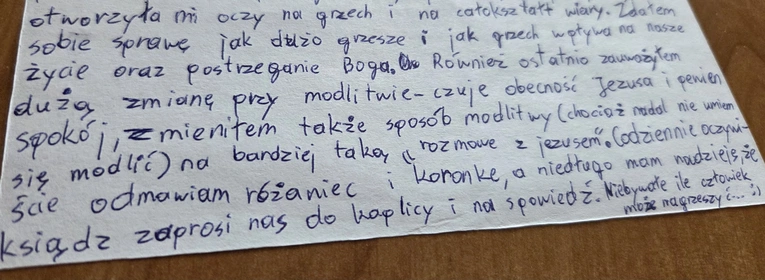 otworzyła mi oczy na grzech i na całokształt wiary. Zdałem
sobie sprawę jak dużo grzeszę i jak grzech wpływa na nasze
życie oraz postrzeganie Boga. Również ostatnio zauważyłem
dużą zmianę przy modlitwie - czuję obecność Jezusa i pewien
spokój, zmieniłem także sposób modlitwy (chociaż nadal nie umiem
się modlić) na bardziej taką "rozmowę z jezusem". Codziennie oczywi-
ście odmawiam różaniec i koronkę, a niedługo mam nadzieję, że
ksiądz zaprosi nas do kaplicy i na spowiedź. Niebywałe ile człowiek
może nagrzeszyć (... :)